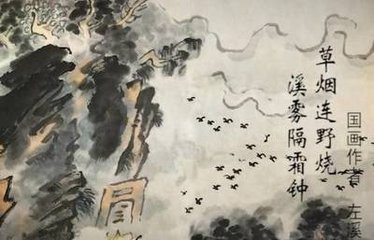 草烟连野烧
溪雾隔霜钟
国画作者 左溪